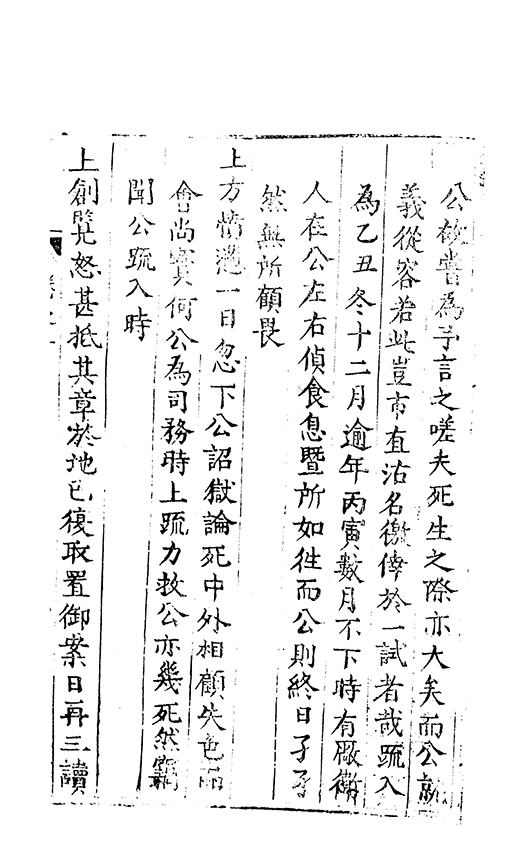 公故嘗為予言之嗟夫死生之際亦大矣而公就
義從容若此豈市直沽名徼倖於一試者哉疏入
為乙丑冬十二月逾年丙寅數月不下時有厰衛
人在公左右偵食息暨所如徃而公則終日孑孑
然無所顧畏
上方愭邁一日忽下公詔獄論死中外相顧失色而
會尚賓何公為司務時上疏力救公亦幾死然竊
聞公疏入時
上創見怒甚抵其章於地已復取置御案日再三讀
卷之一